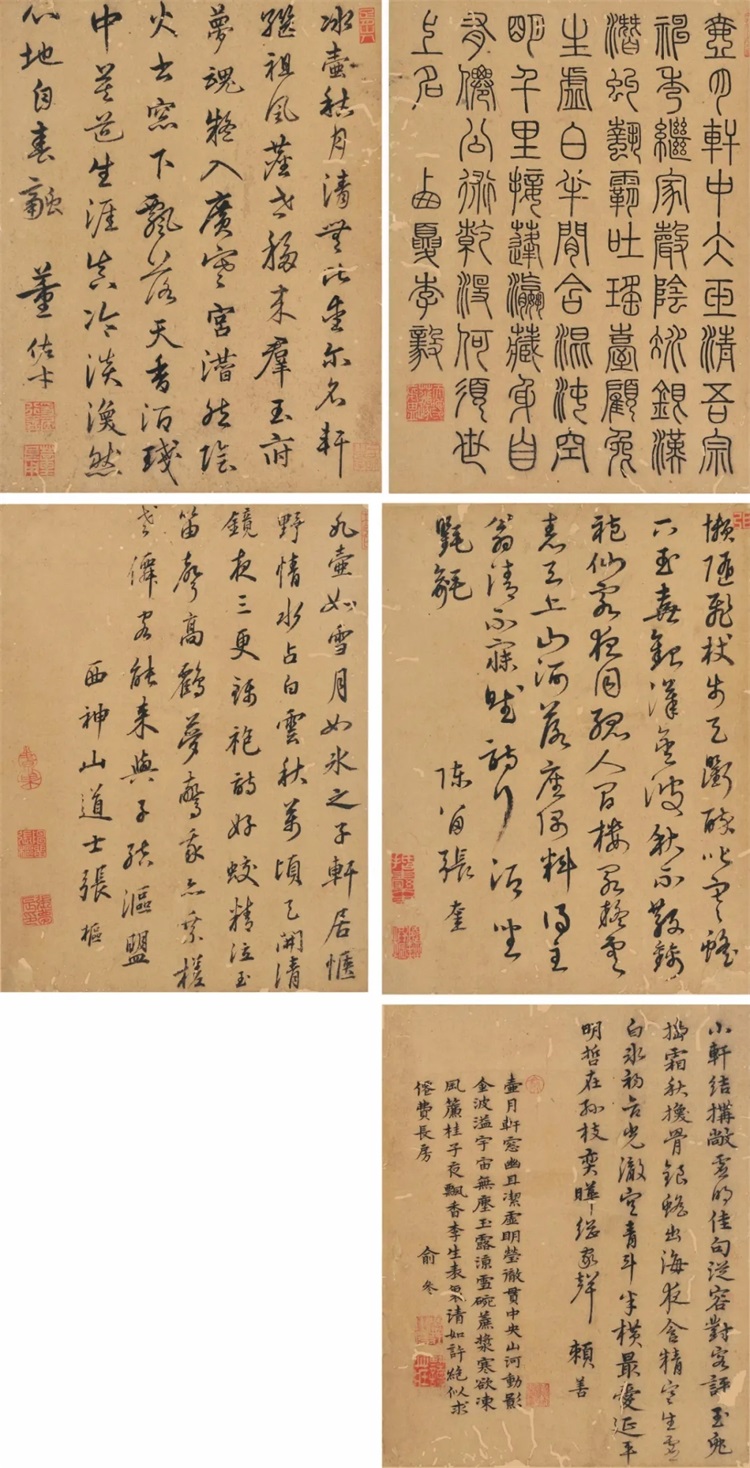 壺月軒中大雅清吾宗
秀繼家聲陰垂銀漢
潛虯霸吐瑤臺顧兔
生虛白半間含混沌空
明千里接蓬瀛藏身自
有僊公術乾沒何須世
上名 西夏李毅
冰壺秋月清無比尔名軒
繼祖風老移來羣玉府
夢魂凝入廣寒宮潛然陰
火出窓下飄落天香酒琖
中莫道生涯真冷淡渙然
心地自春融 董佐才
九壺如雪月如氷之子軒居愜
野情水占白雲秋萬頃天開清
鏡夜三更錦袍詩好蛟精泣玉
笛聲高鶴夢驚我亦乘槎
老僊客能來與子結漚盟
西神山道士張樞
懶隨飛杖步天醉吸蟾
玉壺銀漢無波秋不散錦
袍仙客夜同人間樓閣輕雲
表天上山河落座隅料得主
翁清不寐賦詩行酒坐
氍毹 陳留張奎
小軒結構敞雲佳句從容對客評玉兔
擣霜秋換骨銀蟾出海夜含精空生虛
白氷初合光徹空青斗半橫最愛延平
明哲在孫枝奕曄繼家聲 賴善
壺月軒窓幽且潔虛明瑩徹貫中央山河動影
金波溢宇宙無塵玉露涼雪碗蔗漿寒欲凍
風簾桂子夜飄香李生表裏清如許絕似求
僊費長房 俞冬